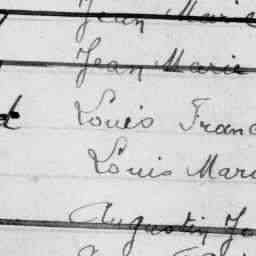 Jean Marie
Jean Marie
Louis Franc
Louis Mari
Augustin Je